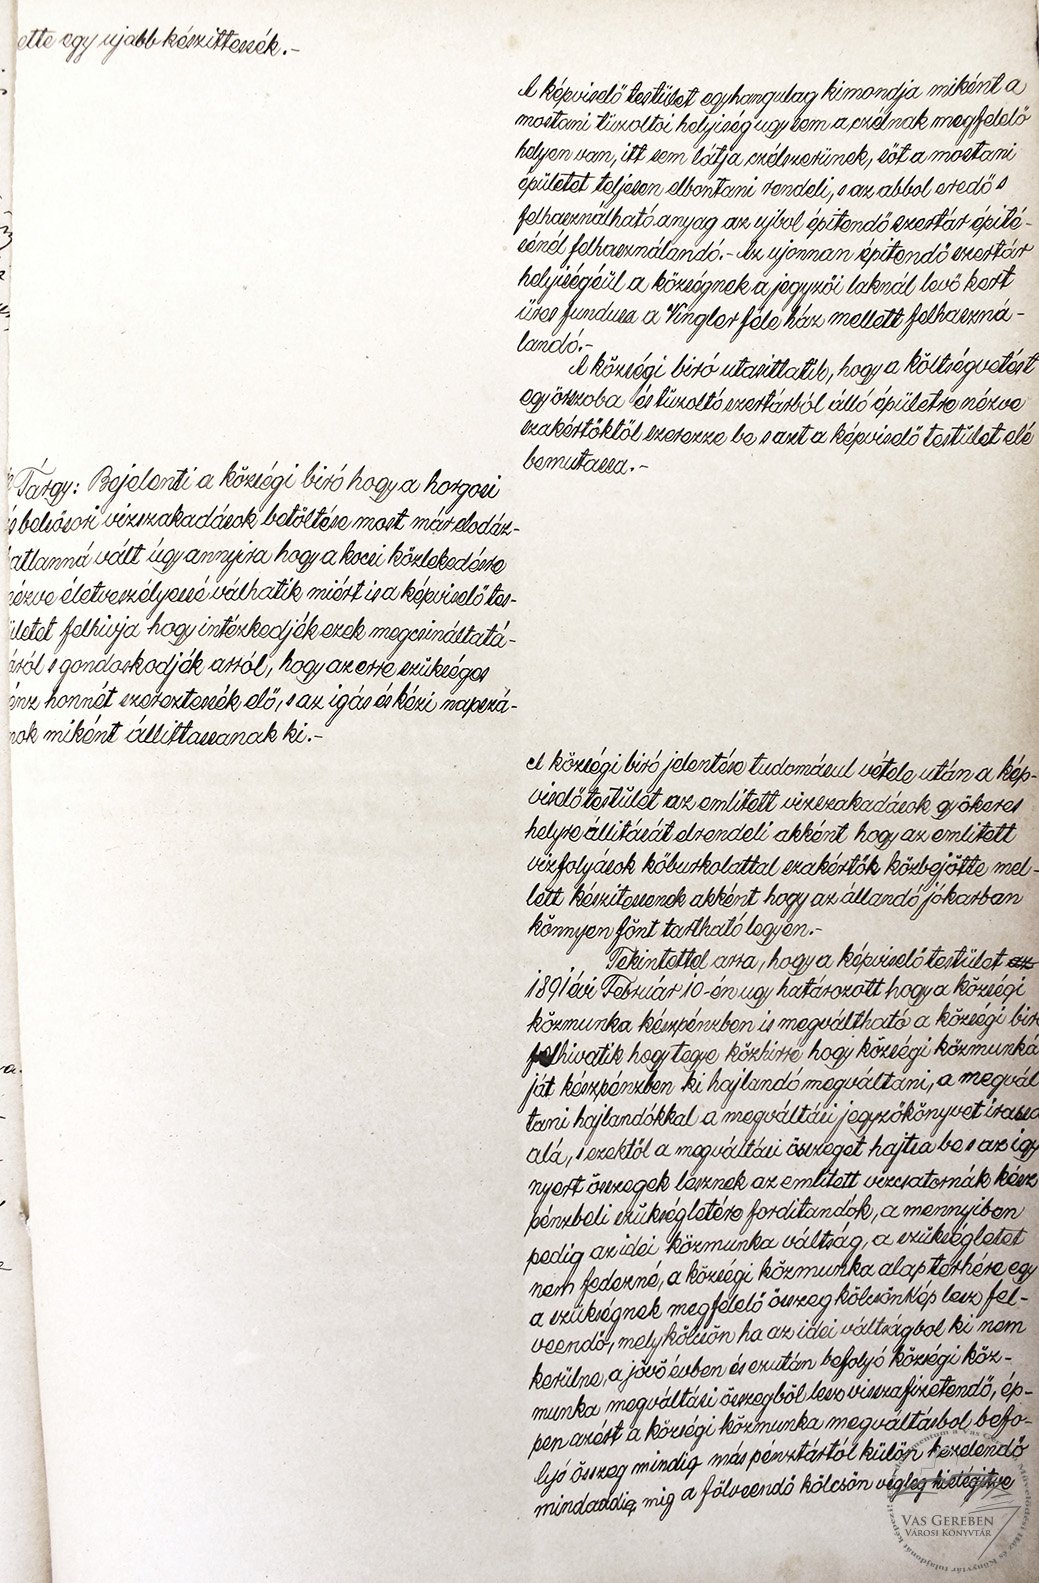 ette egy ujabb készittessék.-
A képviselő testület egyhangulag kimondja miként a
mostani tűzoltói helyiség ugy sem a czélnak megfelelő
helyen van, itt sem látja czélszerünek, sőt a mostani
épületet teljesen elbontani rendeli, s az abbol eredő s
felhasználható anyag az ujbol építendő szertár építé-
sénél felhasználandó.- Az ujonnan építendő szertár
helyiségéül a községnek a jegyzői laknál levő kert
üres fundusa a Vingler féle ház mellett felhaszná-
landó.-
A községi biró utasittatik, hogy a költségvetést
egy őrszoba és tűzoltó szertárból álló épületre nézve
szakértőktől szerezze be s azt a képviselő testület elé
bemutassa.-
Tárgy: Bejelenti a községi biró hogy a horgosi
és belsősori vizszakadások betöltése most már elodáz-
hatlanná vált úgy annyira hogy a kocsi közlekedésre
nézve életveszélyessé válhatik miért is a képviselő tes-
ületet felhivja hogy intézkedjék ezek megcsináltatá-
áról s gondoskodjék arról, hogy az erre szükséges
énz honnét szereztessék elő, s az igás és kézi napszá-
mok miként állittassanak ki.-
A községi biró jelentése tudomásul vétele után a kép-
viselő testület az említett vizszakadások gyökeres
helyre állítását elrendeli akként hogy az említett
vízfolyások kőburkolattal szakértők közbejötte mel-
lett készitessenek akként hogy az állandó jókarban
könnyen fönt tartható legyen.-
Tekintettel arra, hogy a képviselő testület az
1891 évi Február 10-én ugy határozott hogy a községi
közmunka készpénzben is megváltható a községi biró
felhivatik hogy tegye közhírré hogy községi közmunká
ját készpénzben ki hajlandó megváltani, a megvál
tani hajlandókkal a megváltási jegyzőkönyvet írassa
alá, s ezektől a megváltási összeget hajtsa be s az igy
nyert összegek lesznek az említett vizcsatornák kész
pénzbeli szükségletére forditandók, a mennyiben
pedig az idei közmunka váltság, a szükségletet
nem fedezné, a községi közmunka alap terhére egy
a szükségnek megfelelő összeg kölcsönkép lesz fel-
veendő, mely kölcsön ha az idei váltságbol ki nem
kerülne, a jövő évben és ezután befolyó községi köz-
munka megváltási összegből lesz visszafizetendő, ép-
pen azért a községi közmunka megváltásbol befo-
lyó összeg mindig más pénztártól külön kezelendő
mindaddig, mig a fölveendő kölcsön végleg kielégitve
VAS GEREBEN
VÁROSI KÖNYVTÁR